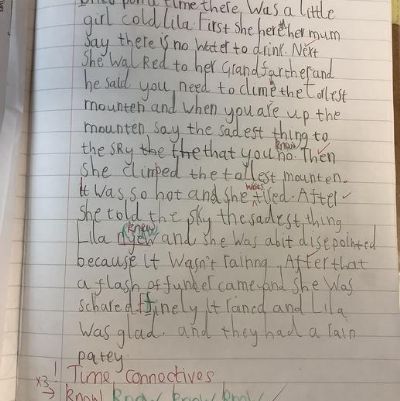 pon a time there, was a little
girl cold Lila First she here her mum
say there is no water to drink. Next
she walked to her Grandfarther and
he said you need to clime the tollest
mounten and when you are up the
mounten, say the sadest thing to
the sky the the that you no. Then
know
she climped the tallest mounten.
was
it was, so hot and she tired. After
she told the sky the sadest thing
knew
Lila and she was abit disepointed
because it wasn't raining, After that
a flash of funder came and she was
schared finely it raned and Lila
was glad. and they had a rain
parey
! Time connectives
x3 → know know know know